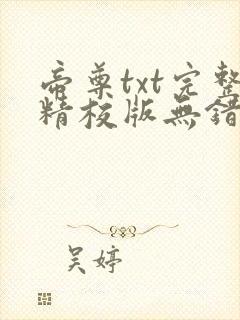 帝尊txt完整
精校版無錯
吴婷